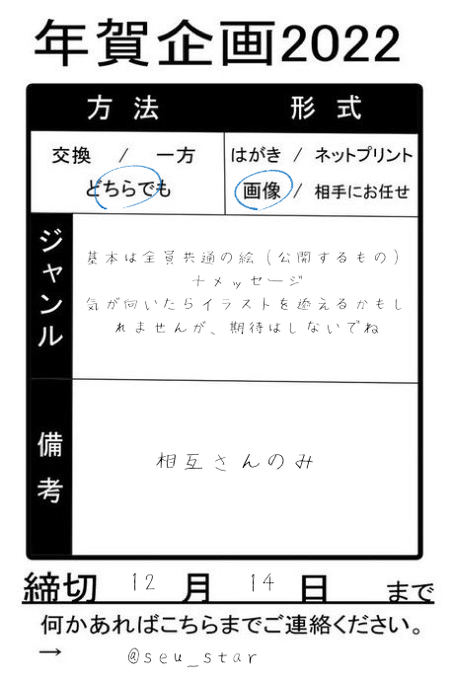 年賀企画2022
方法 形式
交換 / 一方 はがき / ネットプリント
どちらでも 画像 / 相手にお任せ
ジャンル
基本は全員共通の絵(公開するもの)
+メッセージ
気が向いたらイラストを添えるかもし
れませんが、期待はしないでね
備考
相互さんのみ
締切 12 月 14 日 まで
何かあればこちらまでご連絡ください。
→ @seu_star